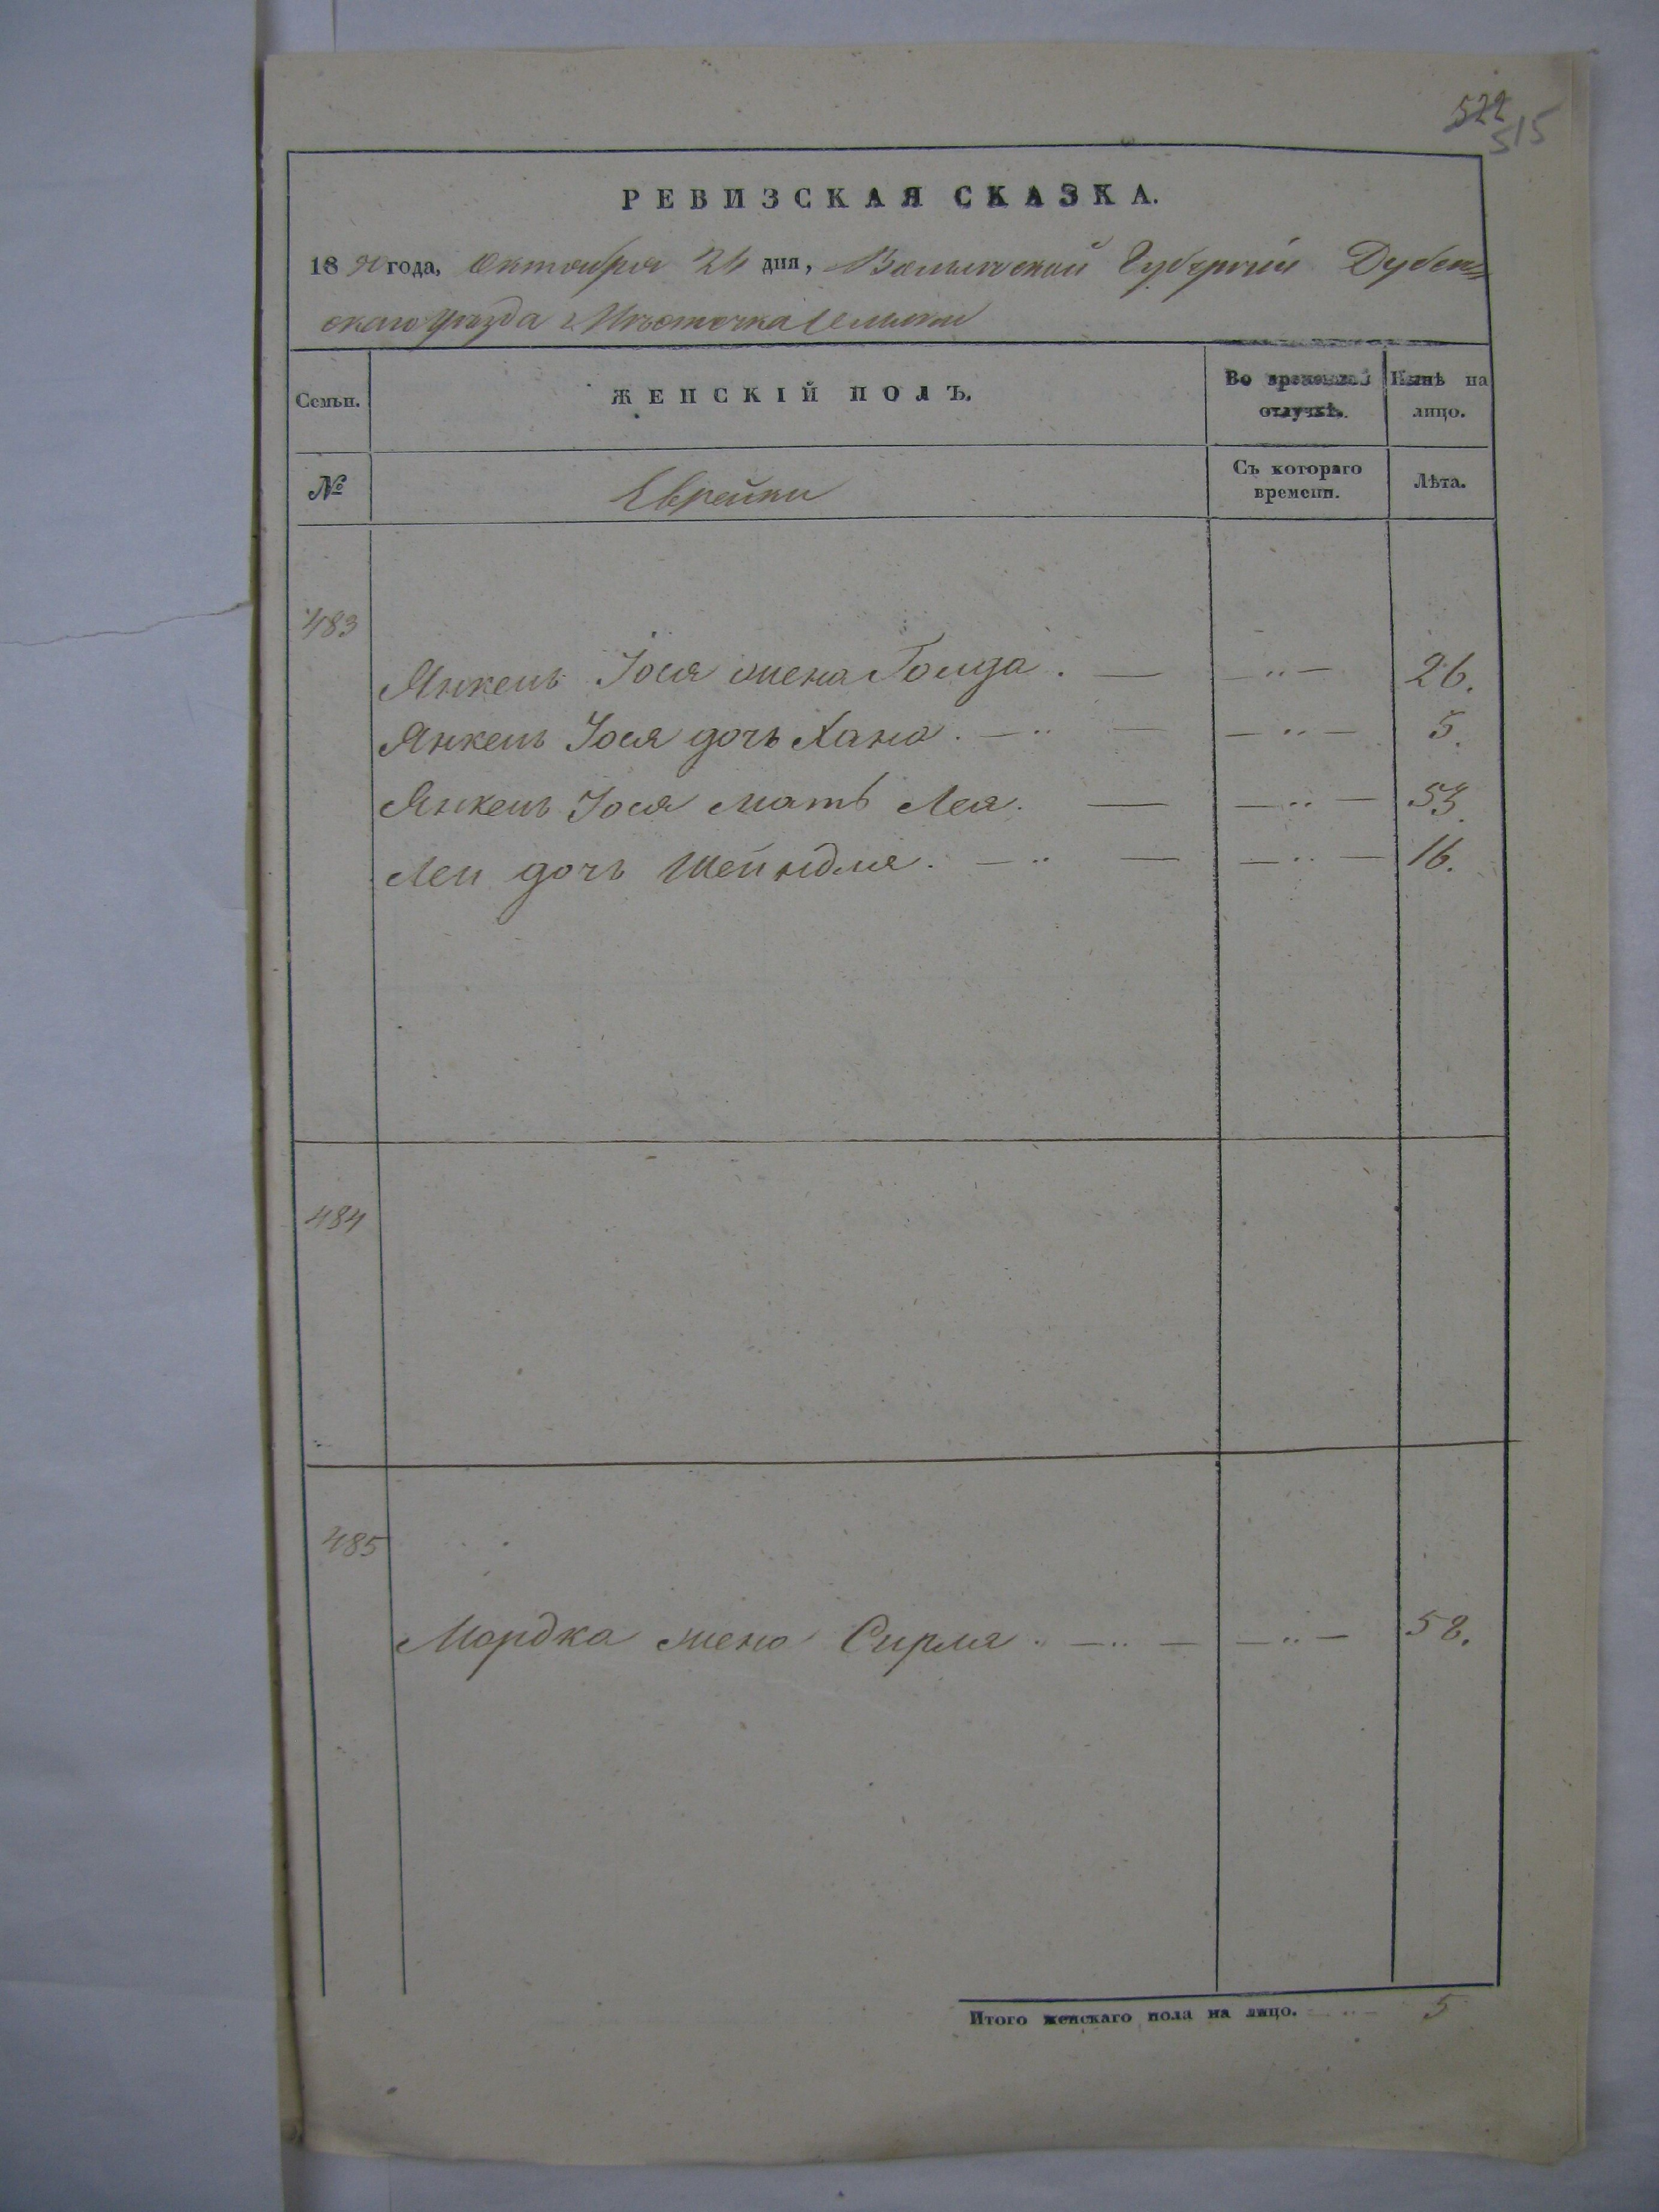 522
515
РЕВИЗСКАЯ СКАЗКА.
1850 года, Октября 24 дня, Волынской Губерніи Дубен=
скаго уѣзда Мѣстечка
Семьи. ЖЕНСКІЙ ПОЛЪ. Во временной отлучкѣ. Нынѣ на лицо.
№ Еврейки Съ котораго времени. Лѣта.
483
Янкель Іося жена Голда. — — „ — 26.
Янкель Іося дочь Хана. — „ — — „ — 5.
Янкель Іося мать Лея. — — „ — 53.
Леи дочь Шейндля. — „ — — „ — 16.
484
485
Мордка жена Сирля. — „ — — „ — 58.
Итого женскаго пола на лицо. — „ — 5